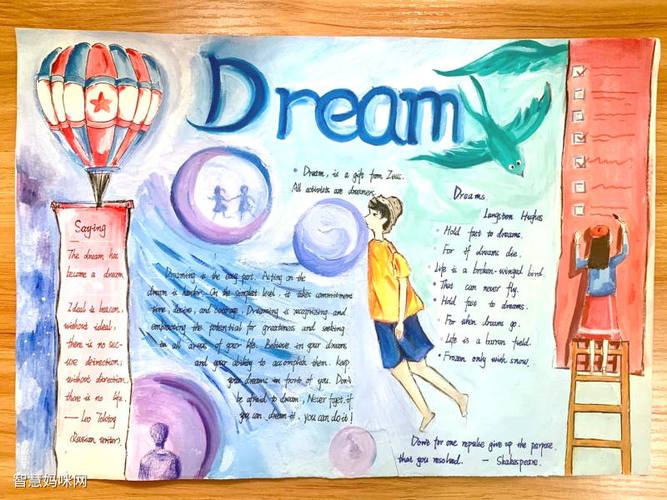 Dream
Dream, is a gift from Zeus.
All activists are dreamers.
Saying
The dream has
become a dream
Ideal is beacon,
without ideal,
there is no sec-
ure direction;
without direction
there is no life.
— Leo Tolstoy
(Russian writer).
Dreaming is the easy part. Acting on the
dream is harder. On the simplest level, it takes commitment
time, desire, and courage. Dreaming is recognizing and
embracing the potential for greatness and seeking
in all areas of your life. Believe in your dream
and your ability to accomplish them. Keep
your dreams in front of you. Don't
be afraid to dream, Never forget, if
you can dream it, you can do it!
Dreams
Langston Hughes
Hold fast to dreams.
For if dreams die.
Life is a broken-winged bird.
That can never fly.
Hold fast to dreams.
For when dreams go.
Life is a barren field.
Frozen only with snow.
Don't for one repulse give up the purpose
that you resolved. — Shakespeare.
智慧妈咪网